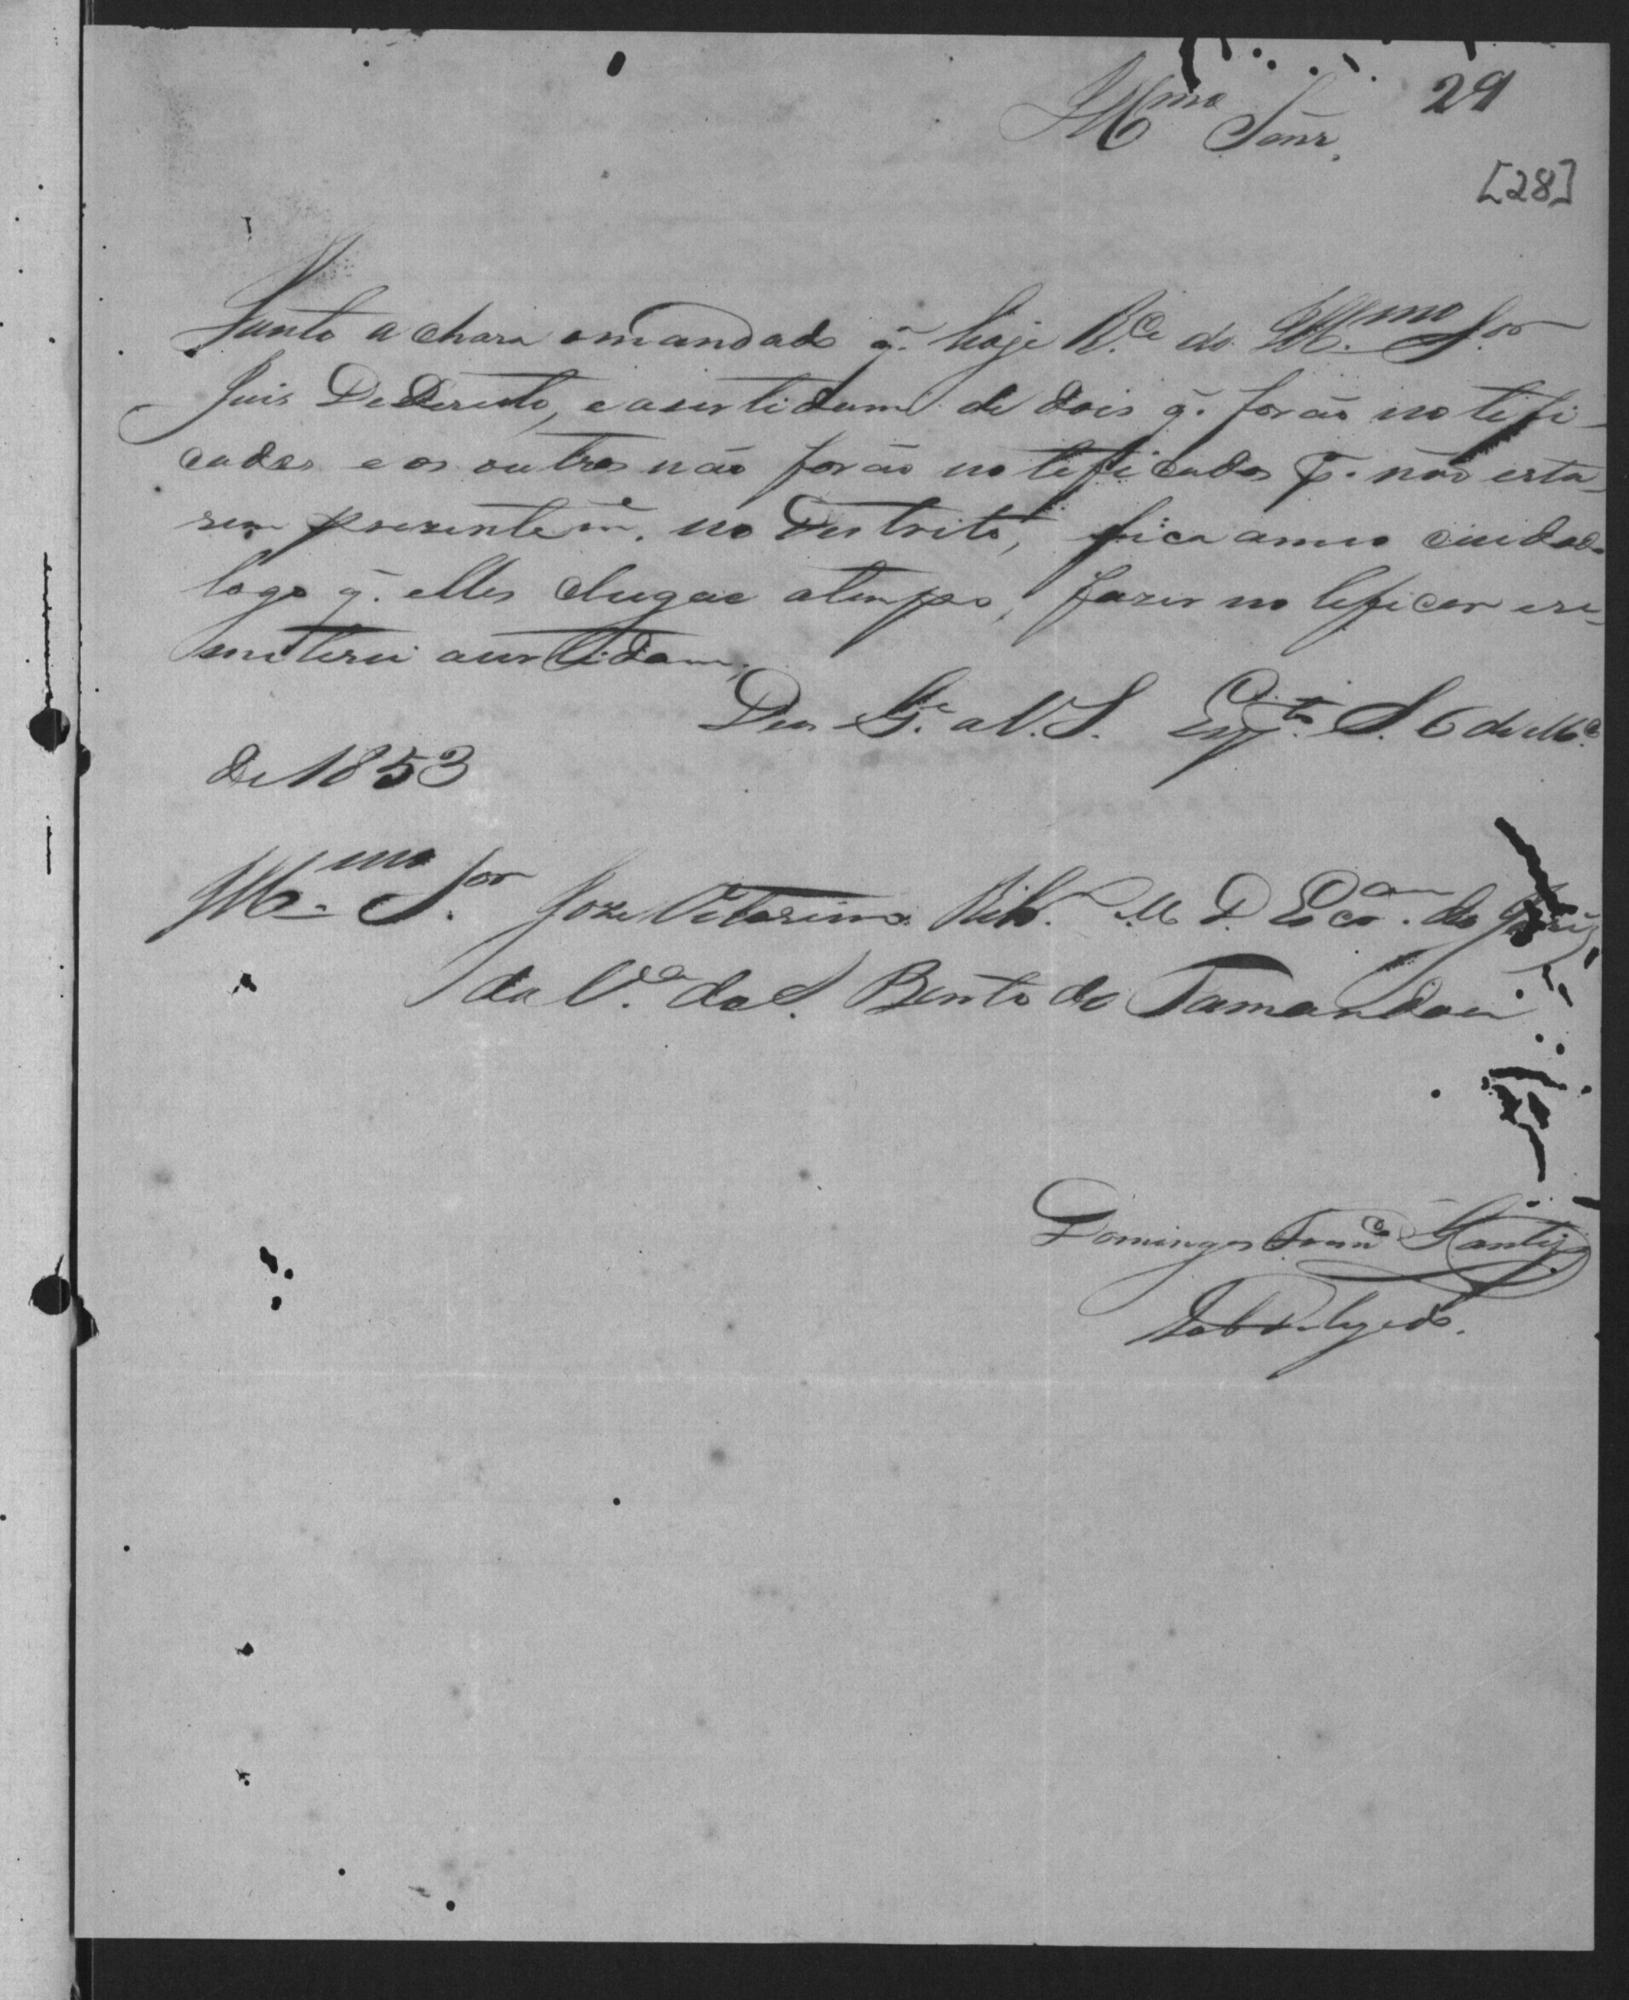 29
Illmo Senr.
[28]
Junto a chara omandado q. hoje R.ce do Illmo Sor
Juis DeDereito, e asertidam de dois q. forão notefi-
cados e os outros não forão noteficados p. não esta-
rem prezentem.e no Destrito, fica ameo cuidado
logo q. elles chegue atempo, fazer noteficar ere-
meterei asertidam,
Deos G.e a V. S. S. 6 de M.o
de 1853
Illmo Sor Joze Vitorino Rib.o M D do
da V.a de S. Bento do Tamandoá
Domingos Franco
Subdelegado.